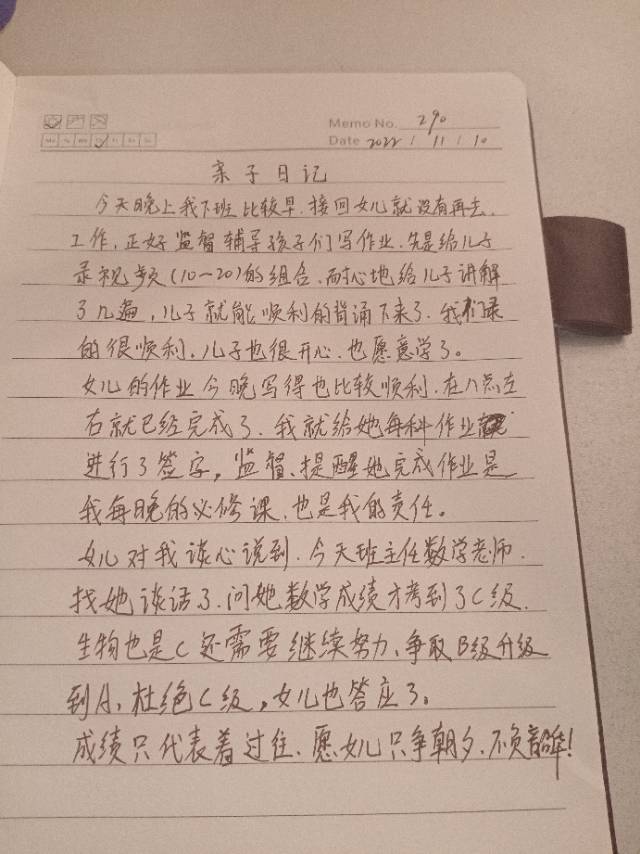 Memo No. 290
Mo Tu We Th Fr Sa Su
Date 2022 / 11 / 10
亲子日记
今天晚上我下班比较早,接回女儿就没有再去
工作,正好监督辅导孩子们写作业,先是给儿子
录视频(10-20)的组合,耐心地给儿子讲解
了几遍,儿子就能顺利的背诵下来了,我们录
的很顺利,儿子也很开心,也愿意学了。
女儿的作业今晚写得也比较顺利,在八点左
右就已经完成了,我就给她每科作业
进行了签字,监督、提醒她完成作业是
我每晚的必修课,也是我的责任。
女儿对我谈心说到,今天班主任数学老师,
找她谈话了,问她数学成绩才考到了C级,
生物也是C还需要继续努力,争取B级升级
到A,杜绝C级,女儿也答应了。
成绩只代表着过往,愿女儿只争朝夕,不负韶华!